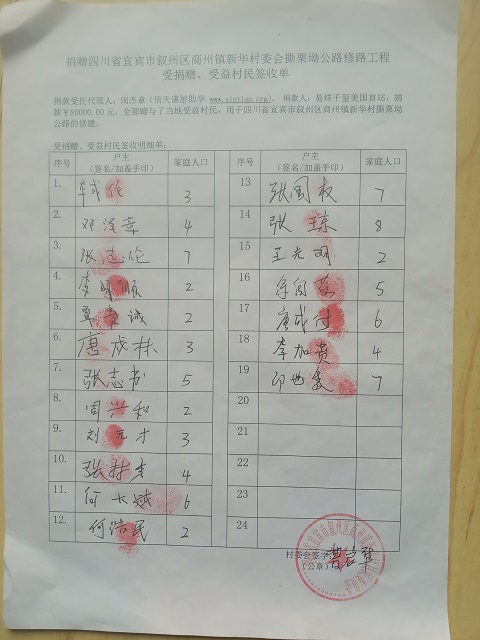 捐赠四川省宜宾市叙州区商州镇新华村委会撕栗坳公路修路工程
受捐赠、受益村民签收单
捐款受托代理人：闵杰章（信天谨游助学 www.xintian.org）。捐款人：易烊千玺美国首站，捐
款￥80000.00元，全部赠与了当地受益村民，用于四川省宜宾市叙州区商州镇新华村撕栗坳
公路的修建。
受捐赠、受益村民签收明细单：
序号 户主（签名/加盖手印） 家庭人口 序号 户主（签名/加盖手印） 家庭人口
1. 3
2. 邓泽章 4
3. 张志伦 7
4. 李 2
5. 诚 2
6. 唐成林 3
7. 张志书 5
8. 周兴和 2
9. 刘元才 3
10. 张林 4
11. 何大斌 6
12. 何浩民 2
13 张国权 7
14 张琼 8
15 王光明 2
16 5
17 唐成付 6
18 李加贵 4
19 7
20
21
22
23
24
村委会签字：
（公章）